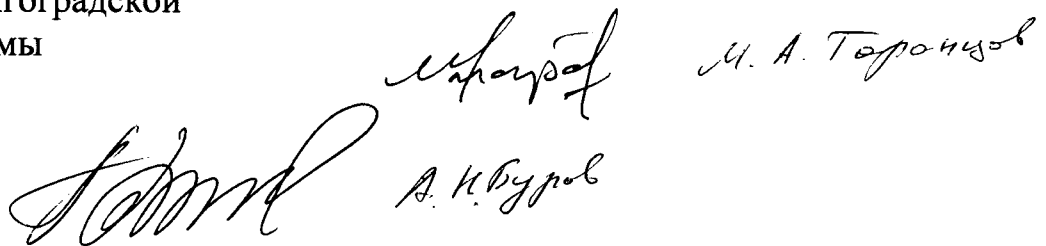 гоградской
мы
М. А. Таранцов
А. Н. Буров